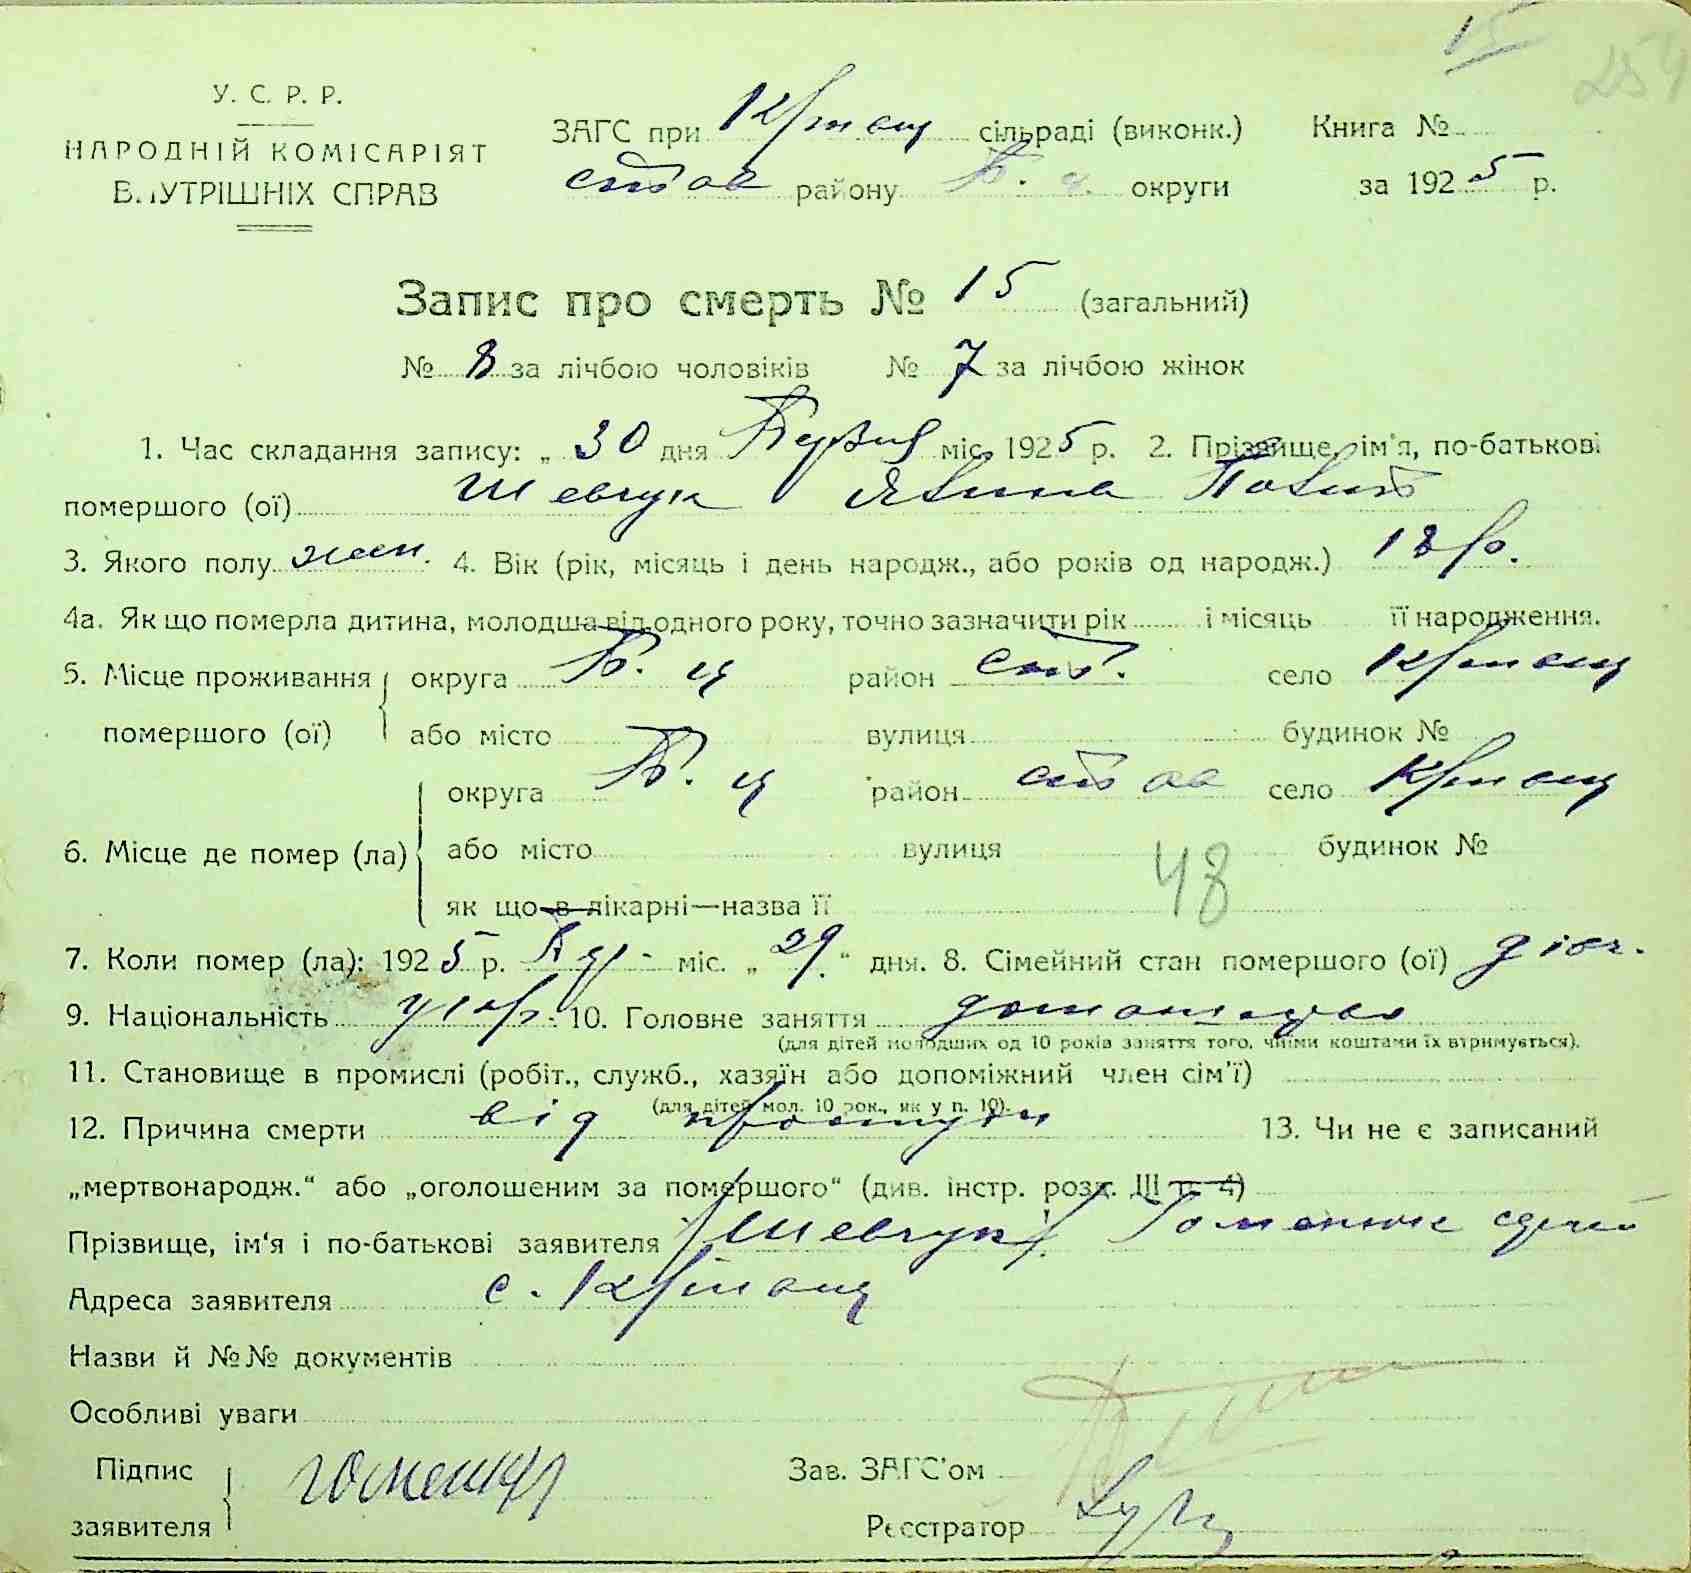 15
254
У. С. Р. Р.
НАРОДНІЙ КОМІСАРІЯТ
ВНУТРІШНІХ СПРАВ
ЗАГС при сільраді (виконк.) Книга №
став району Б. ц. округи за 1925 р.
Запис про смерть № 15 (загальний)
№ 8 за лічбою чоловіків № 7 за лічбою жінок
1. Час складання запису: „ 30 дня міс. 1925 р. 2. Прізвище, ім'я, по-батькові
помершого (ої) Шевчук
3. Якого полу жен. 4. Вік (рік, місяць і день народж., або років од народж.) 18 р.
4а. Як що померла дитина, молодша від одного року, точно зазначити рік і місяць її народження.
5. Місце проживання округа Б. ц район став. село
помершого (ої) або місто вулиця будинок №
округа Б. ц район став село
6. Місце де помер (ла) або місто вулиця 48 будинок №
як що в лікарні—назва її
7. Коли помер (ла): 1925 р. міс. „ 29 “ дня. 8. Сімейний стан помершого (ої) дівч.
9. Національність укр. 10. Головне заняття
(для дітей молодших од 10 років заняття того, чиїми коштами їх втримується).
11. Становище в промислі (робіт., служб., хазяїн або допоміжний член сім'ї)
(для дітей мол. 10 рок., як у п. 10).
12. Причина смерти від простуди 13. Чи не є записаний
„мертвонародж.“ або „оголошеним за помершого“ (див. інстр. розд. III п. 4)
Прізвище, ім'я і по-батькові заявителя Шевчук
Адреса заявителя с.
Назви й №№ документів
Особливі уваги
Підпис
заявителя
Зав. ЗАГС'ом
Реєстратор